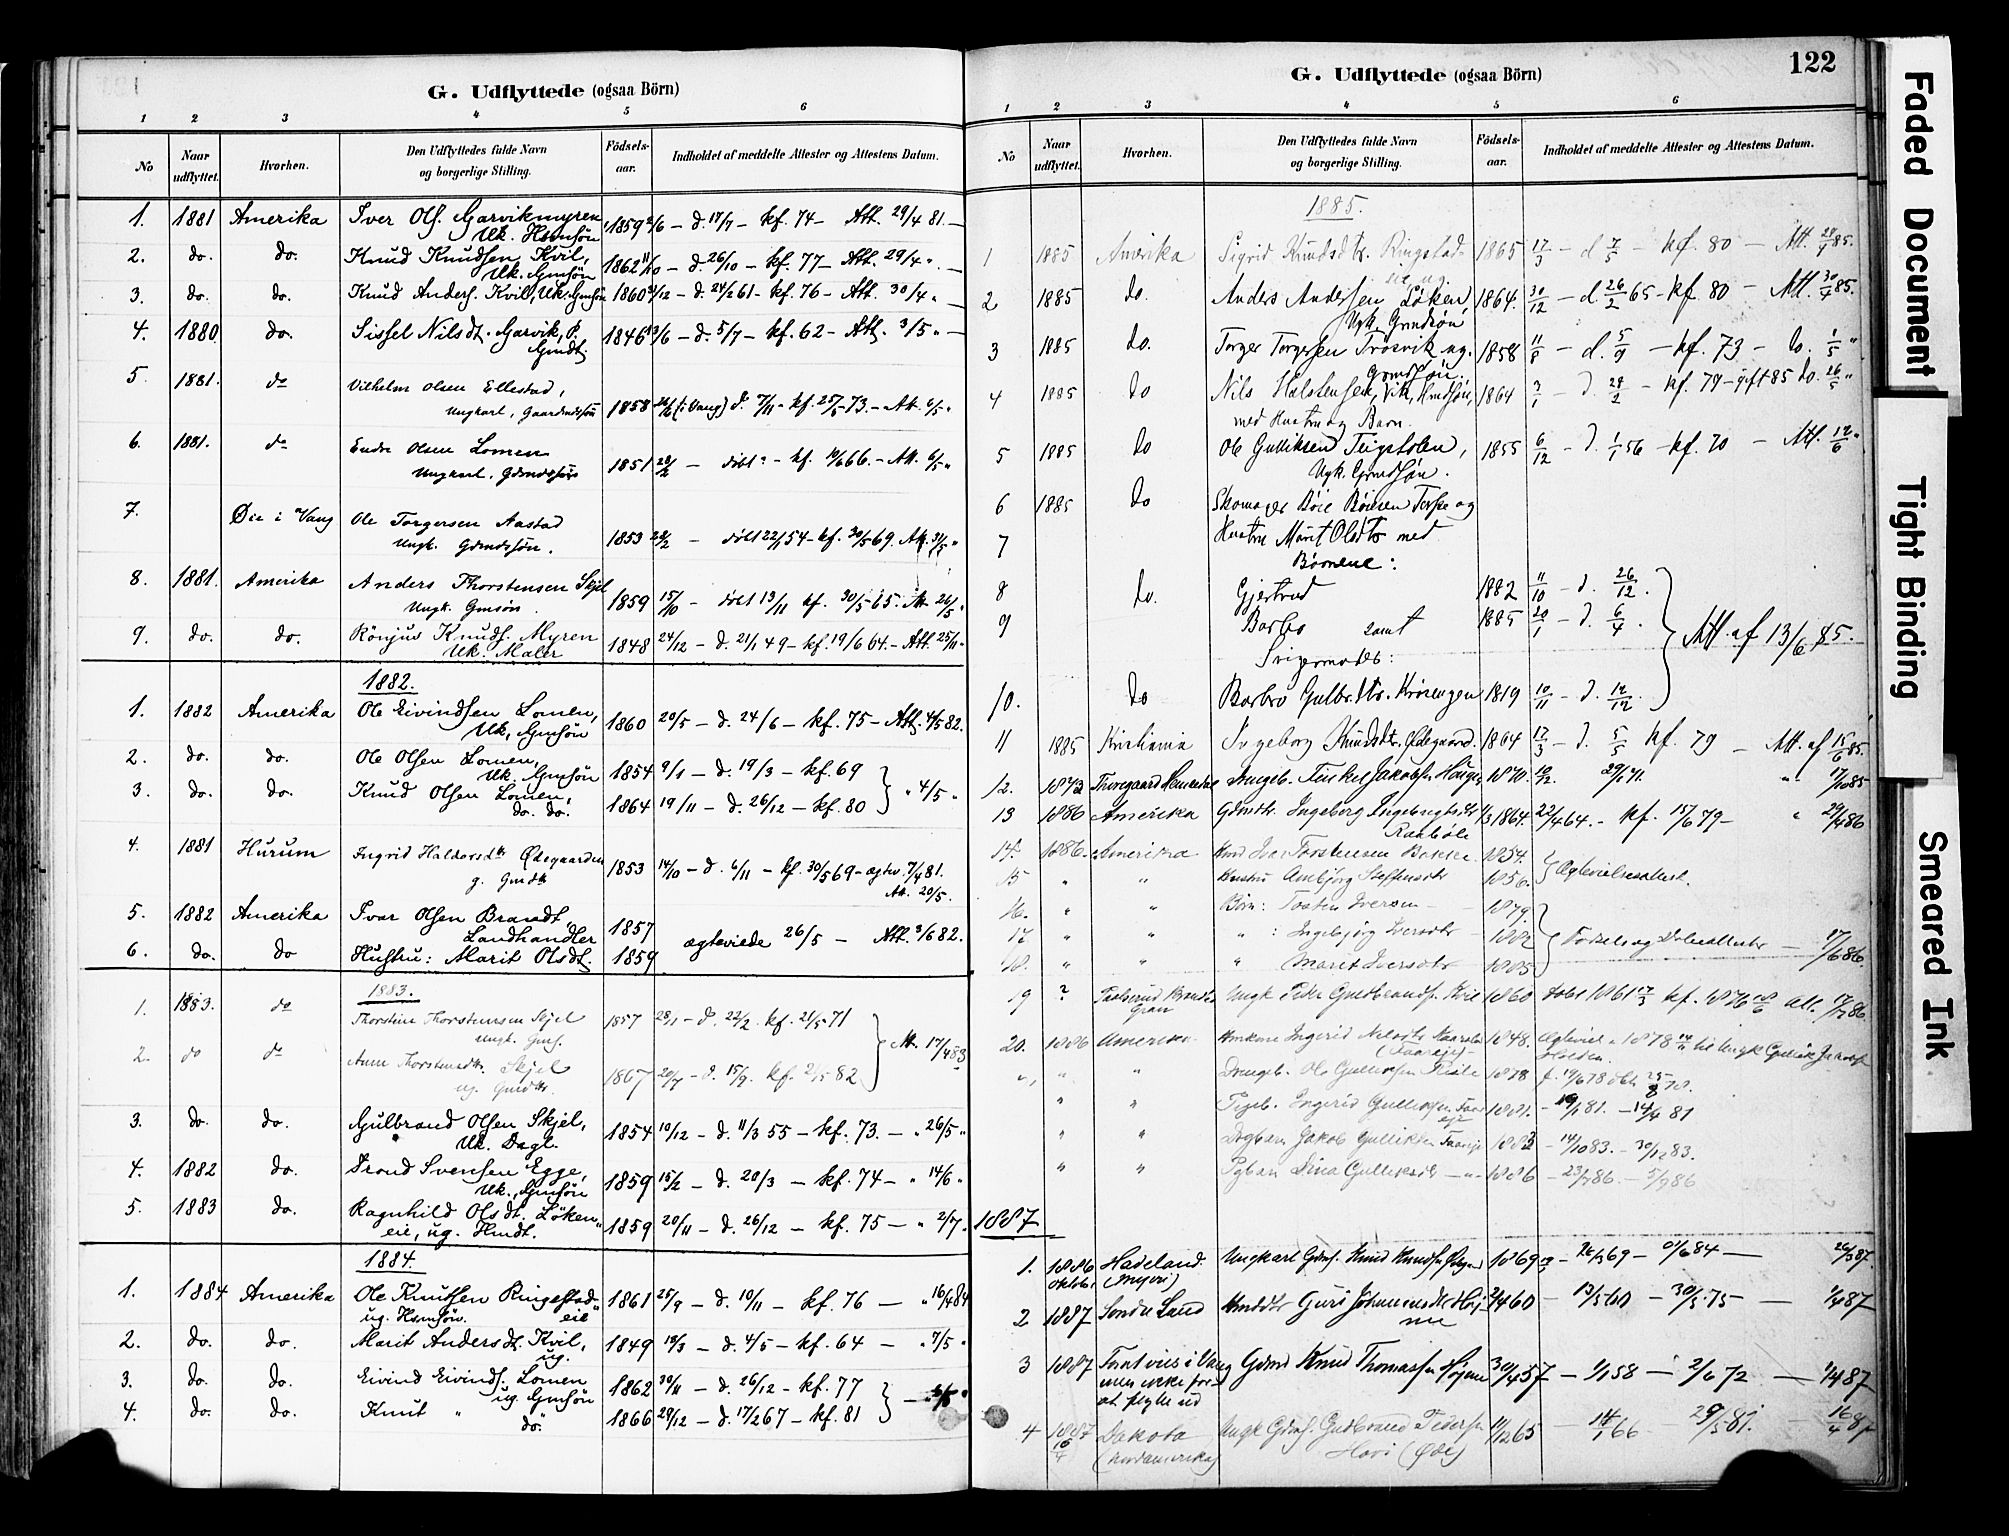 G. Udflyttede (ogsaa Börn)
1 2 3 4 5 6
No Naar udflyttet. Hvorhen. Den Udflyttedes fulde Navn og borgerlige Stilling. Födsels-aar. Indholdet af meddelte Attester og Attestens Datum.
1. 1881 Amerika Iver Ols. Garvikmyren, 1859 2/6 – d. 17/7 – kf. 74 – Att. 29/4 81. –
Uk. Hsmsøn
2. do. do. Knud Knudsen Kvil, 1862 11/10 – d. 26/10 – kf. 77 – Att. 29/4 „ –
Uk. Gmsøn
3. do. do. Knud Anders. Kvil, Uk. Gmsøn 1860 /12 – d. 24/2 61 – kf. 76 – Att. 30/4 „ –
4. 1880 do. Sissel Nilsdt. Garvik, P. 1846 13/6 – d. 5/7 – kf. 62 – Att. 3/5 „ –
Gmdt.
5. 1881. do Vilhelm Olsen Ellestad,
Ungkarl, Gaardmdssøn 1858 26/6 (i Vang) d. 7/11 – kf. 25/5 73. – Att. 6/5 „
6. 1881. do Endre Olsen Lomen
Ungkarl, Gdmdssøn 1851 28/2 – döbt ? – kf. 10/6 66. – Att. 6/5 „
7. Øie i Vang Ole Torgersen Aastad
Ungk. Gdmdssøn. 1853 28/2 – döbt 22/1 54 – kf. 30/5 69. Att. 31/5 „
8. 1881. Amerika Anders Thorstensen Skjel
Ungk. Gmsøn. 1859 15/10 – döbt 13/11 kf. 30/5 65. Att. 26/5 „
9. do. do. Rönjus Knuds. Myren 1848 24/12 – d. 21/1 49 – kf. 19/6 64. – Att. 25/11 „
Uk. Maler
1882.
1. 1882 Amerika Ole Eivindsen Lomen, 1860 20/5 – d. 24/6 – kf. 75 – Att. 4/5 82.
Uk. Gmsøn
2. do. do. Ole Olsen Lomen, 1854 9/1 – d. 19/3 – kf. 69
Uk. Gmsøn
3. do. do. Knud Olsen Lomen, 1864 19/11 – d. 26/12 – kf. 80 } „ 4/5 „
do. do.
4. 1881 Hurum Ingrid Haldorsdtr Ødegaarden 1853 14/10 – d. 6/11 – kf. 30/5 69 – 7/4 81.
g. Gmdtr Att. 20/5.
5. 1882 Amerika Ivar Olsen Brandt, 1857
Landhandler ægteviede 26/5 – Att. 3/6 82.
6. do. do Hustru: Marit Olsdt. 1859
1883.
1. 1883. do Thorstein Thorstensen Skjel 1857 28/1 – d. 22/2. kf. 21/5 71
Ungk. Gms.
2. do do Anne Thorstensdtr. Skjel 1867 20/7 – d. 15/9. kf. 82 } Att. 17/4 83
ug. Gmdtr.
3. do do. Gulbrand Olsen Skjel, 1854 10/12 – d. 11/3 55 – kf. 73. – „ 26/5 „
Uk. Dagl.
4. 1882 do. Trond Svensen Egge, 1859 15/2 – d. 20/3 – kf. 74 – „ 14/6 „
Uk., Gmsøn
5. 1883 do. Ragnhild Olsdt. Löken- 1859 20/11 – d. 26/12 – kf. 75 – „ 2/7 „
eie, ug. Hmdt.
1884.
1. 1884 Amerika Ole Knutsen Ringestad- 1861 25/9 – d. 10/11 – kf. 76 – „ 16/4 84
ug. Hsmsøn. eie
2. do. do. Marit Andersdt. Kvil, 1849 18/3 – d. 4/5 – kf. 64 – „ 7/5 „
ug.
3. do. do. Eivind Eivinds. Lomen 1862 30/11 – d. 26/12 – kf. 77
ug. Gmsøn
4. do. do. Knut „ 1866 29/12 – d. 17/2 67 – kf. 81 }
do.
G. Udflyttede (ogsaa Börn)
122
1 2 3 4 5 6
No Naar udflyttet. Hvorhen. Den Udflyttedes fulde Navn og borgerlige Stilling. Födsels-aar. Indholdet af meddelte Attester og Attestens Datum.
1885.
1 1885 Amerika Sigrid Knudsdtr. Ringstad- 1865 17/3 – d 7/5 – kf. 80 – Att. 85.
eie ug
2 1885 do. Anders Andersen Löken, 1864. 30/12 – d. 26/2 65 – kf. 80 – Att. 30/4 85.
Ugk. Grmdsøn
3 1885 do. Torger Torgersen Trösvik ug. 1858 11/8 – d. 5/9 – kf. 73 – do. 1/5 „
Grmdsøn.
4 1885 do Nils Halstensen, Vik, Hmdsøn, 1864 3/1 – d. 28/2 – kf. 79 – gift 85 do. 26/5 „
med Hustru og Barn.
5 1885 do Ole Gulliksen Tingstolen, 1855 6/12 – d. 1/1 56 – kf. 70 – Att. 12/6 „
Ugk. Grmdsøn.
6 1885 do Skomager Böie Böiesen Torpe og
7 Hustru Marit Olsdtr med
Börnene:
8 do. Gjertrud 1882 11/10 – d. 26/12.
9 Barbro samt 1885 20/1 – d. 6/4.
Svigermoder:
10. do Barbro Gulbr.dtr. Krösengen 1819 10/11 – d. 12/12. } Att. af 13/6 85.
11 1885 Kristiania Ingeborg Knudsdtr. Ødegaard. 1864 17/3 – d. 5/5 kf. 79 – Att. af 15/6 85.
12. 1873 Drengeb. Jakobsen 1870. 29/1 71. „ 17/10 85
13 1886 Amerika Gdmdtr. Ingeborg Ingebrigtsdtr 1864. 22/4 64. – kf. 15/6 79 – „ 29/4 86
14. 1886. Amerika Iver Torstensen Bakke 1854.
15 „ „ Hustru Ambjörg Steffensdtr 1856. }
16. „ „ Börn: Tosten Iversen – 1879.
17 „ „ „ : Ingebjörg Iversdtr – 1882
18. „ „ „ Marit Iversdtr 1885. } Födsels og Dobsattester – 17/6 86.
19 ? Ungk Peder Gudbrands. Kvil 1860 döbt 1861 17/3 kf. 1876 18/6 att. 86.
20. 1886 Amerika Ingerid Nilsdtr 1848. 1878 til Ungk Gullik
„ „ „ Drengeb. Ole Gulliksen 1878 f. 19/6 78 döbt 25/8 78.
„ „ Pigeb. Ingerid Gulliksdtr 1881. – 81. – 81
„ „ Drgbarn Jakob Gulliksen 1883 – 14/10 83. – 30/12 83.
„ „ Pgbarn Dina Gulliksdtr – „ – 1886 – 86. – 86
1887
1. 1886 Hadeland. Ungkarl Gdms. Knud Knudsen 1869 – 69 – 84 – 87
oktbr.
2 1887 Søndre Land Guri Johannesdtr 60 – 13/5 60 – 30/5 75 – 1/4 87
3 1887 i Vang Gdmd Knud Thomassen Høyme 30/4 57 – 1/1 58 – 2/6 72 – 1/4 87
men ikke for
at flytte ud
4 1887 Dakota Ungk Gdms. Gudbrand Peders. 65 – 14/1 66 29/5 81. 16/4 87
(Nordamerika)
Faded Document
Tight Binding
Smeared Ink